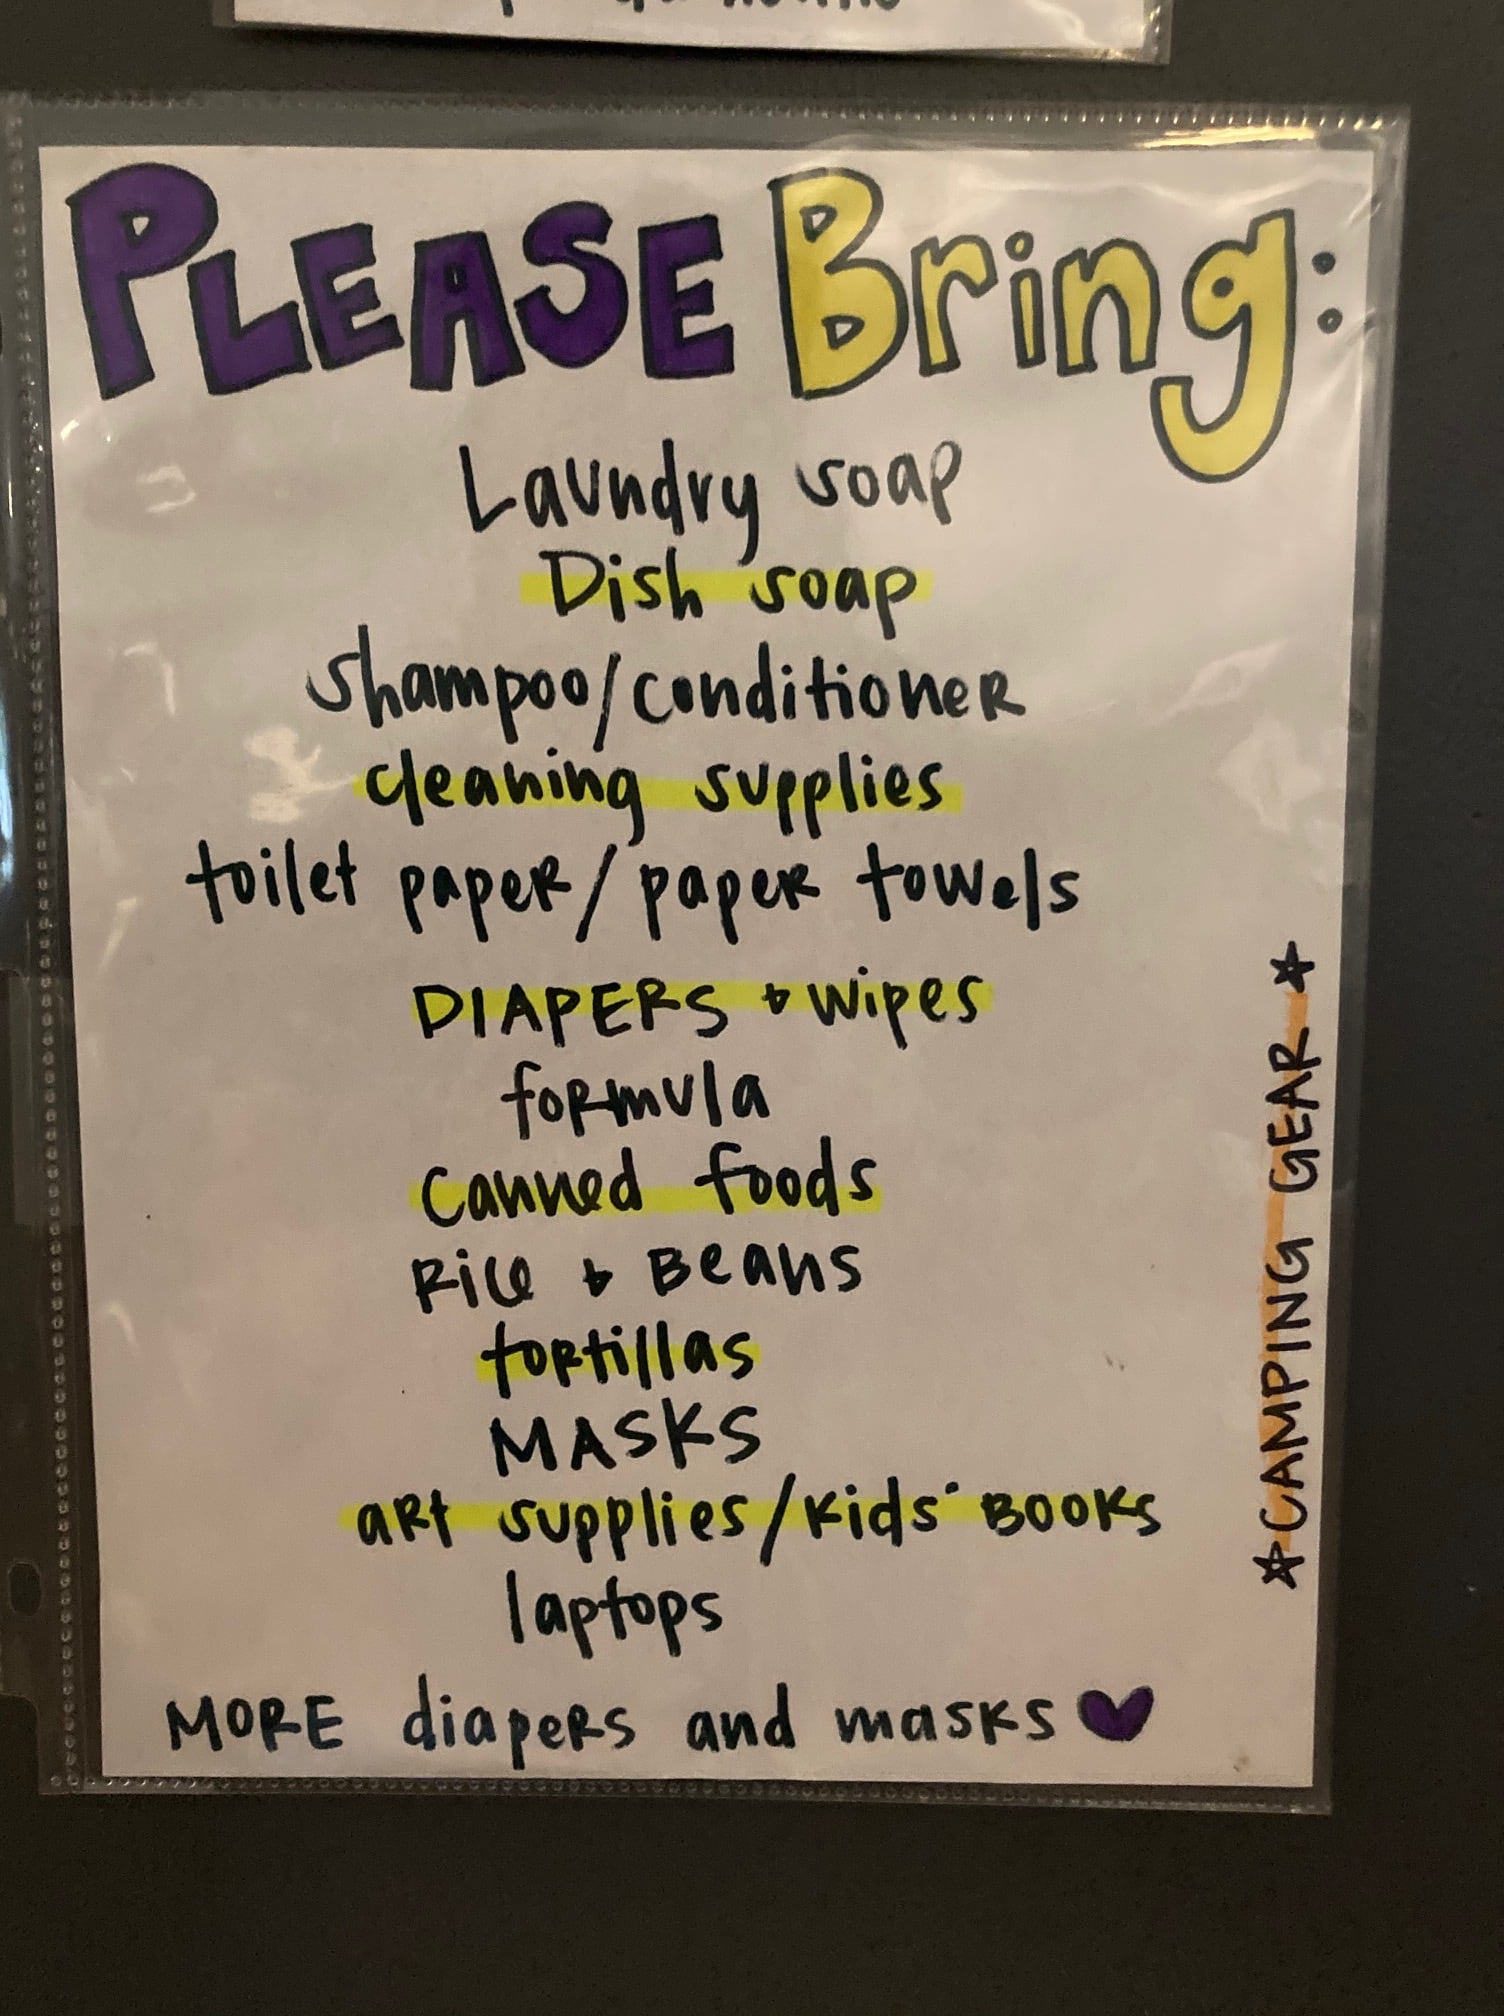 PLEASE Bring:
Laundry soap
Dish soap
shampoo/conditioner
cleaning supplies
toilet paper/paper towels
DIAPERS + wipes
formula
canned foods
Rice + Beans
tortillas
MASKS
art supplies/kids' BOOKS
laptops
MORE diapers and masks ♥
☆CAMPING GEAR☆